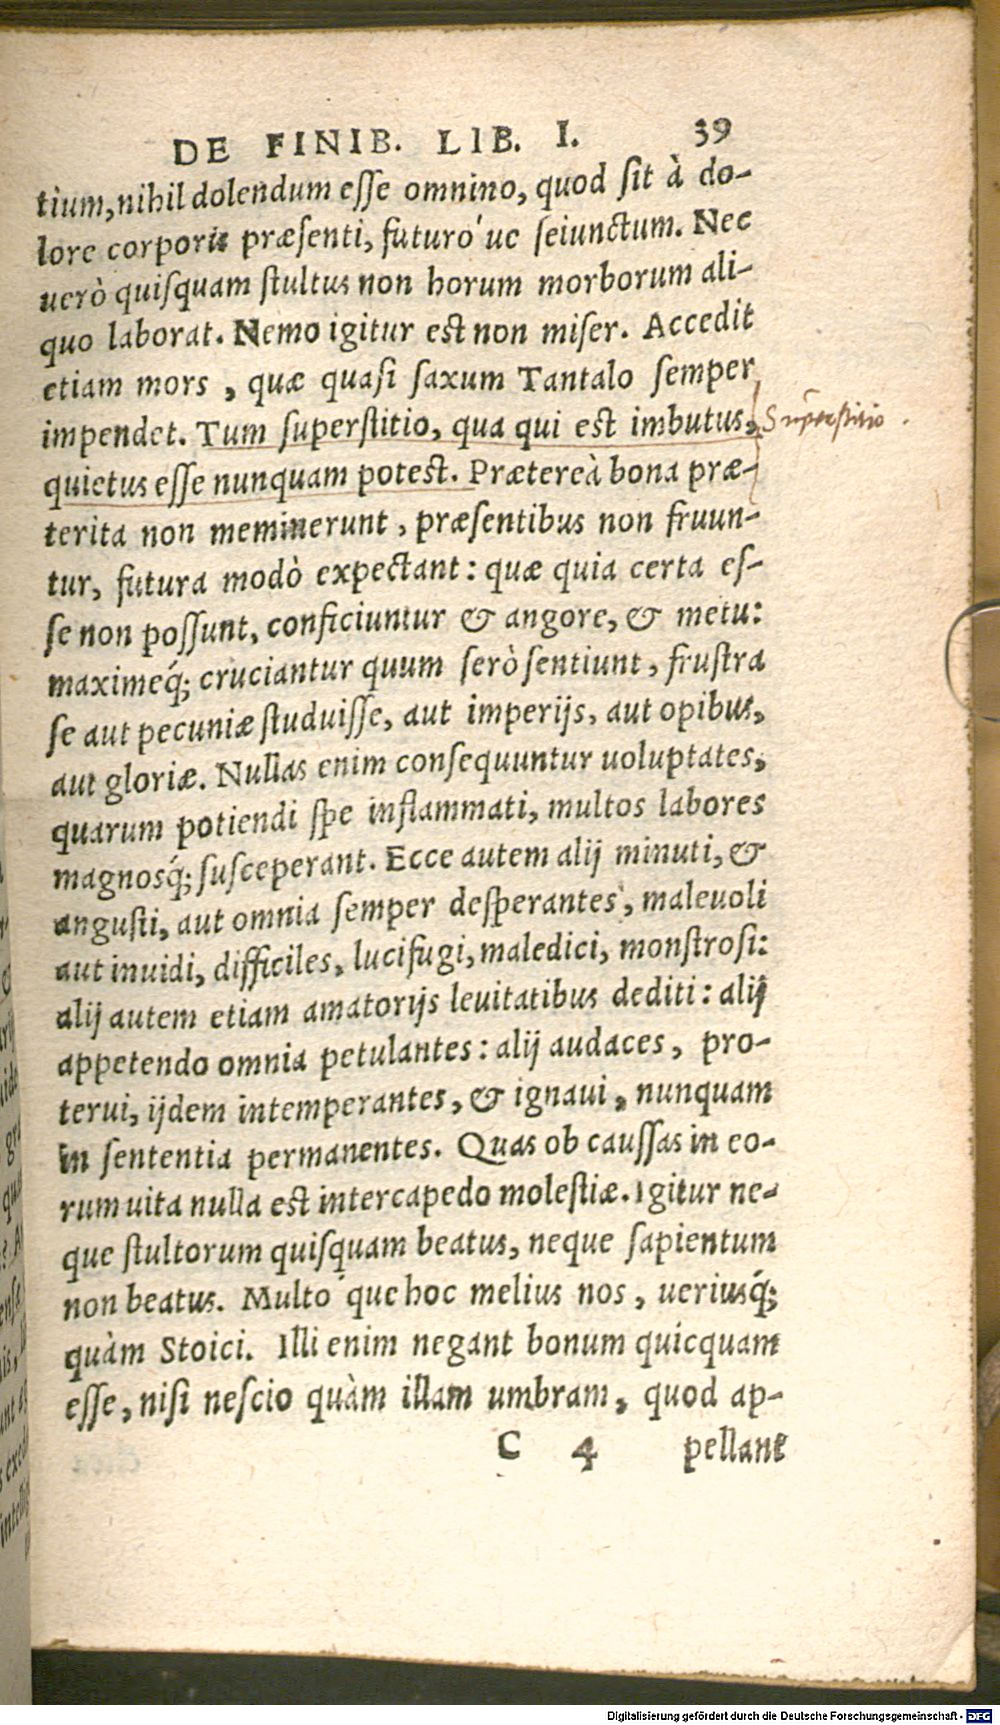 DE FINIB. LIB. I. 39
tium, nihil dolendum esse omnino, quod sit à do-
lore corporis præsenti, futuro´ue seiunctum. Nec
uerò quisquam stultus non horum morborum ali-
quo laborat. Nemo igitur est non miser. Accedit
etiam mors, quæ quasi saxum Tantalo semper
impendet. Tum superstitio, qua qui est imbutus,
Superstitio.
quietus esse nunquam potest. Prætereà bona præ-
terita non meminerunt, præsentibus non fruun-
tur, futura modò expectant: quæ quia certa es-
se non possunt, conficiuntur & angore, & metu:
maximeq́; cruciantur quum serò sentiunt, frustra
se aut pecuniæ studuisse, aut imperijs, aut opibus,
aut gloriæ. Nullas enim consequuntur uoluptates,
quarum potiendi spe inflammati, multos labores
magnosq́; susceperant. Ecce autem alij minuti, &
angusti, aut omnia semper desperantes, maleuoli
aut inuidi, difficiles, lucifugi, maledici, monstrosi:
alij autem etiam amatorijs leuitatibus dediti: alij
appetendo omnia petulantes: alij audaces, pro-
terui, ijdem intemperantes, & ignaui, nunquam
in sententia permanentes. Quas ob caussas in eo-
rum uita nulla est intercapedo molestiæ. Igitur ne-
que stultorum quisquam beatus, neque sapientum
non beatus. Multo´que hoc melius nos, ueriusq́;
quàm Stoici. Illi enim negant bonum quicquam
esse, nisi nescio quàm illam umbram, quod ap-
C 4 pellant
Digitalisierung gefördert durch die Deutsche Forschungsgemeinschaft - DFG